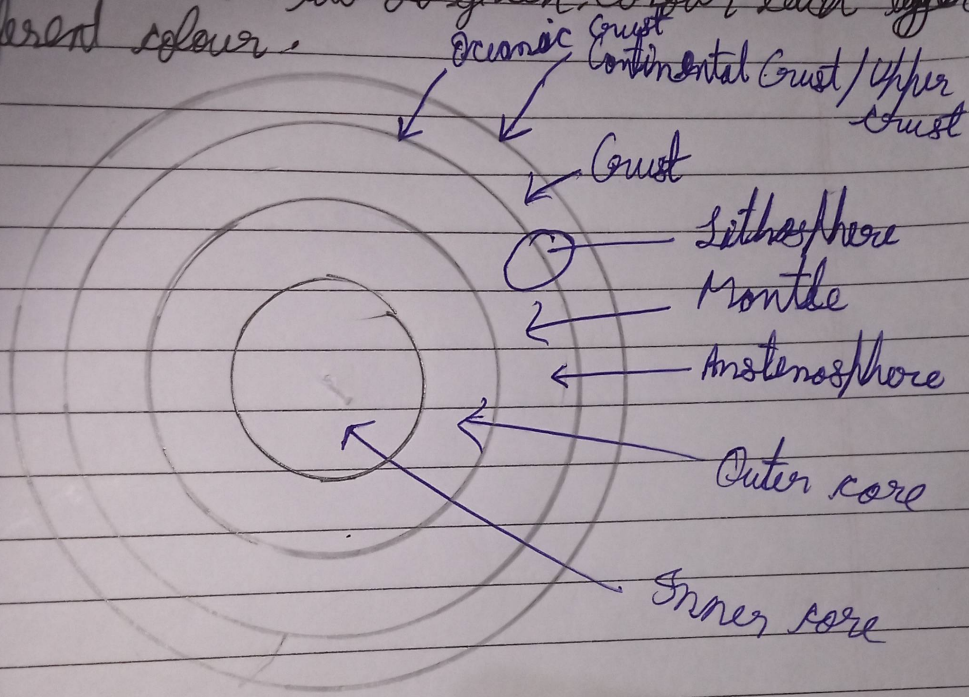 each
ferent colour.
Oceanic Crust
Continental Crust/Upper
Crust
Crust
Lithosphere
Montle
Anstenosphore
Outer core
Inner core